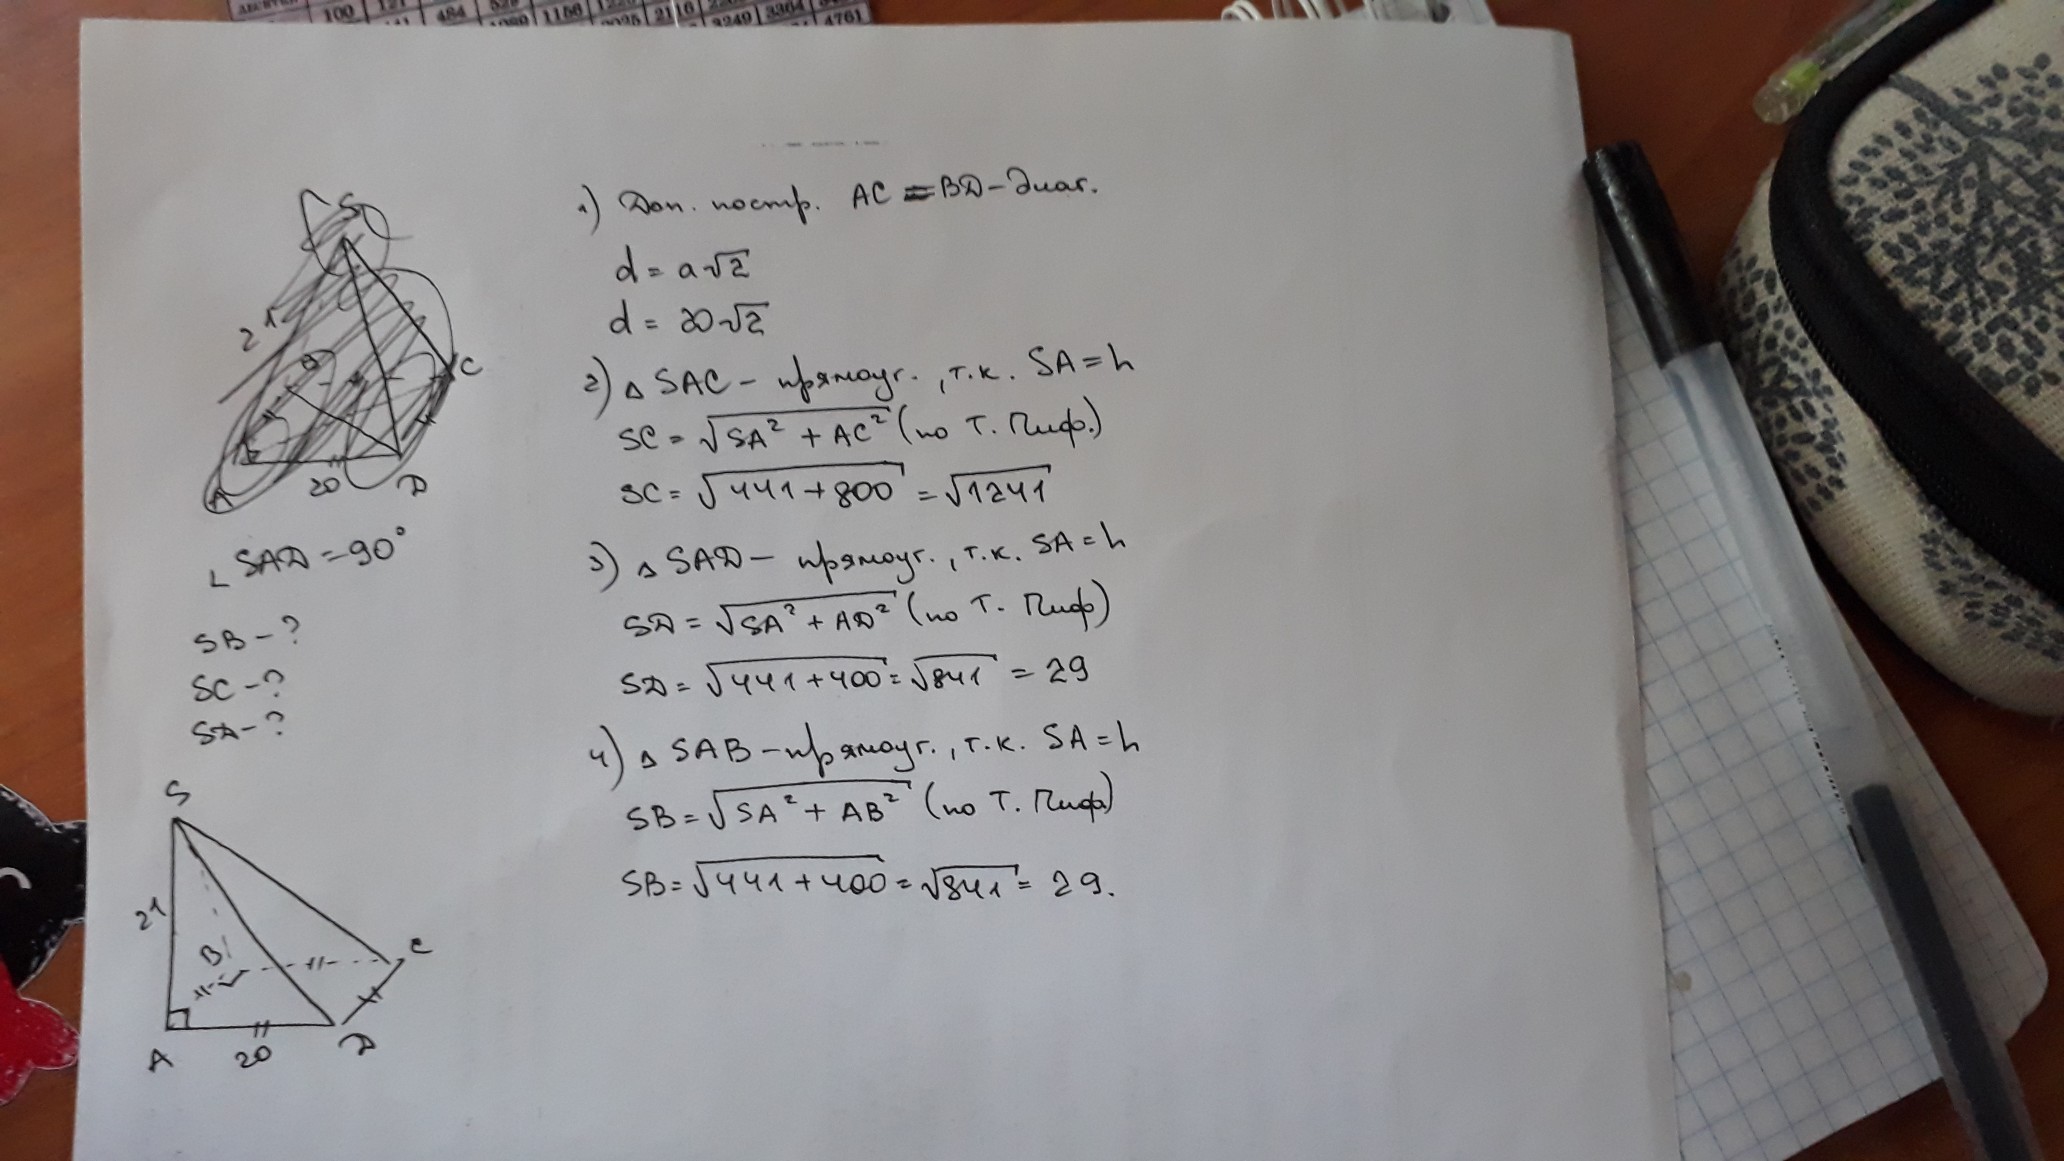 100 121
484 529 1156
2116
3249 3364
4761
S
21
C
A
20
D
∟ SAD = 90°
SB - ?
SC - ?
SD - ?
S
21
B
C
A
20
D
1) Доп. постр. AC = BD - диаг.
d = a√2
d = 20√2
2) △ SAC - прямоуг., т.к. SA = h
SC = √SA² + AC² (по Т. Пиф.)
SC = √441 + 800 = √1241
3) △ SAD - прямоуг., т.к. SA = h
SD = √SA² + AD² (по Т. Пиф)
SD = √441 + 400 = √841 = 29
4) △ SAB - прямоуг., т.к. SA = h
SB = √SA² + AB² (по Т. Пиф)
SB = √441 + 400 = √841 = 29.